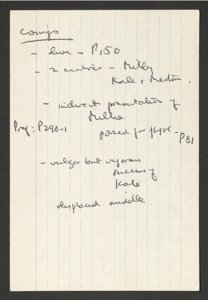 - love - P150
- 2 centres - Milly
Kate & Merton.
- indirect presentation of
Millie
Pref: P290-1
posed for
- P81
- vulgar but vigorous
success of
Kate
displaced middle